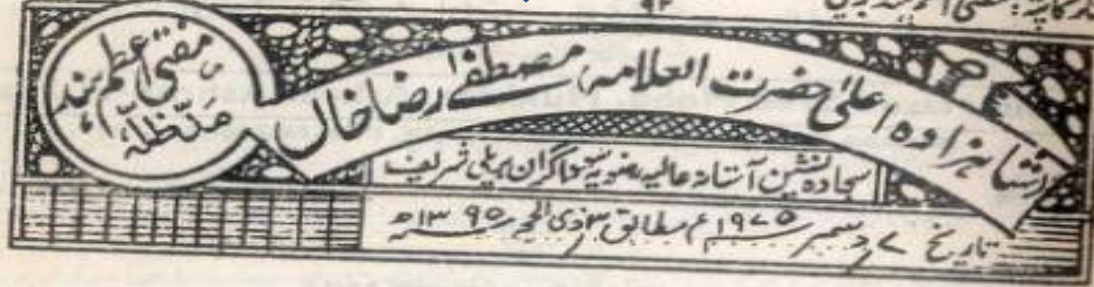 شاہزادہ اعلیٰ حضرت العلامہ مصطفےٰ رضا خاں
مفتی اعظم ہند
مدظلہ
سجادہ نشین آستانہ عالیہ رضویہ سوداگران بریلی شریف
تاریخ ۷ دسمبر ۱۹۷۵ء مطابق ۳ ذی الحجہ ۱۳۹۵ھ